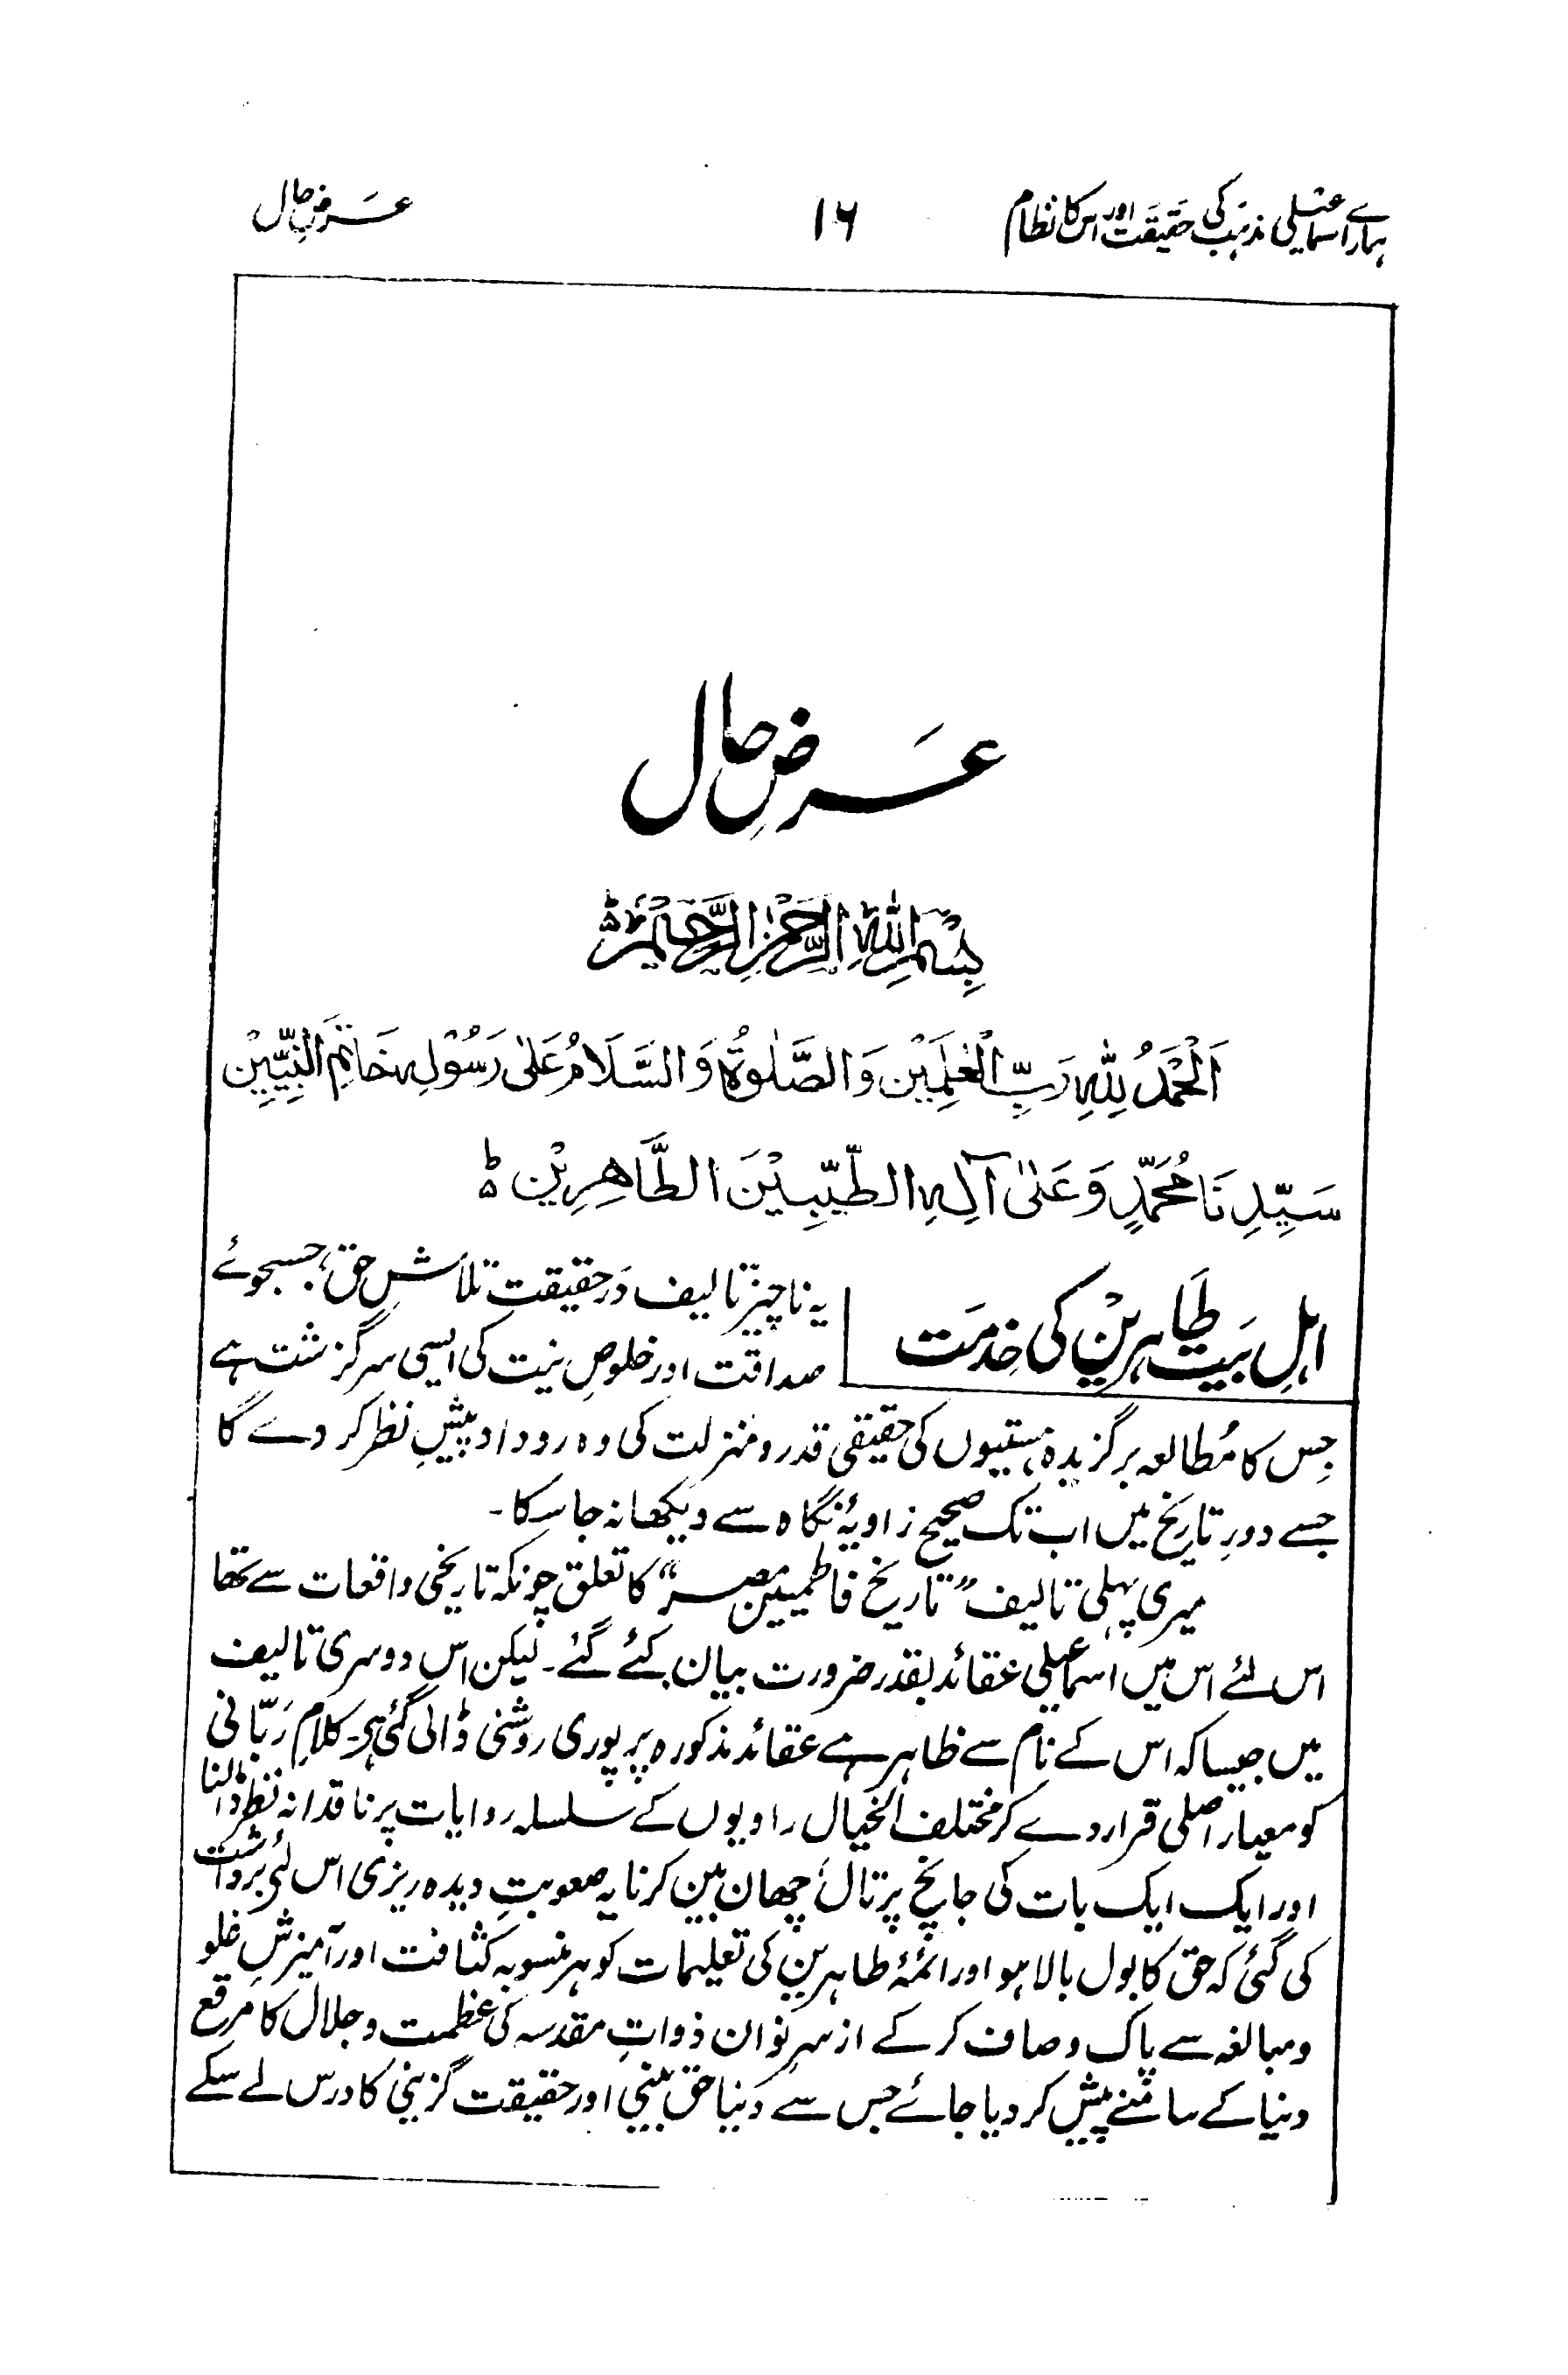 ہمارے اسماعیلی مذہب کی حقیقت اور اس کا نظام ۱۶ عرضِ حال
عَرضِ حال
بِسْمِ اللّٰہِ الرَّحْمٰنِ الرَّحِیْمِ ؕ
اَلْحَمْدُ لِلّٰہِ رَبِّ الْعٰلَمِیْنَ وَالصَّلٰوۃُ وَالسَّلَامُ عَلٰی رَسُوْلِہٖ خَاتَمِ النَّبِیِّیْنَ
سَیِّدِنَا مُحَمَّدٍ وَعَلٰی آلِہِ الطَّیِّبِیْنَ الطَّاہِرِیْنَ ؕ
اہلِ بَیت طَاہرِیْن کی خِدمَت
یہ ناچیز تالیف دَر حقیقت تلاشِ حق، جستجوئے
صداقت اور خلوصِ نیت کی ایسی سرگزشت ہے
جِس کا مُطالعہ برگزیدہ ہستیوں کی حقیقی قدر و منزلت کی وہ روداد پیشِ نظر کر دے گا
جسے دورِ تاریخ میں اب تک صحیح زاویۂ نگاہ سے دیکھا نہ جا سکا۔
میری پہلی تالیف ”تاریخ فاطمیینِ مصر“ کا تعلق چونکہ تاریخی واقعات سے تھا
اس لئے اس میں اسماعیلی عقائد بقدر ضرورت بیان کئے گئے۔ لیکن اس دوسری تالیف
میں جیسا کہ اس کے نام سے ظاہر ہے عقائد مذکورہ پر پوری روشنی ڈالی گئی ہی۔ کلامِ رَبّانی
کو معیار اصلی قرار دے کر مختلف الخیال راویوں کے سلسلہ روایات پر ناقدانہ نظر ڈالنا
اور ایک ایک بات کی جانچ پرتال، چھان بین کرنا یہ صعوبتِ دیدہ ریزی اس لئی برداشت
کی گئی کہ حق کا بول بالا ہو اور ائمۂ طاہرین کی تعلیمات کو ہر منسوبہ کثافت اور آمیزشِ غلو
و مبالغہ سے پاک و صاف کر کے از سرِ نو ان ذواتِ مقدسہ کی عظمت و جلال کا مرقع
دنیا کے سامنے پیش کر دیا جائے جس سے دُنیا حق بینی اور حقیقت گزینی کا درس لے سکے